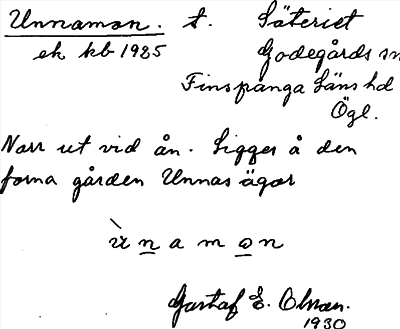 Unnamon. t. Säteriet
ek kb 1925 Godegårds sn
Finspånga läns hd
Ögl.
Norr ut vid ån. Ligger å den
forna gården Unnas ägor
ù n a m o n
Gustaf E. Olsson.
1930